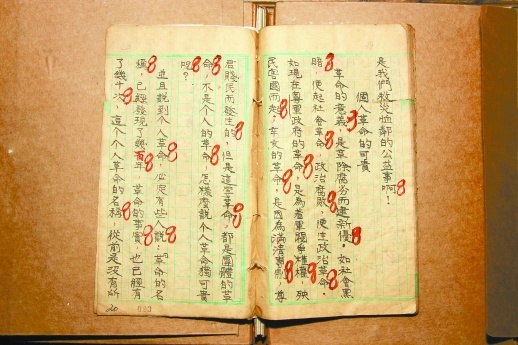 是我們救災恤鄰的公益事啊！
個人革命的可貴
革命的意義，是革除腐舊而建新優，如社會黑
暗，便起社會革命，政治腐敗，便生政治革命，
如現在尊重政府的革命，是為着軍閥爭權，殃
民害國而起；辛亥的革命，是因為滿清專制，尊
君賤民而發生的，但是這些革命，都是團體的革
命，不是个人的革命，怎樣麼說个人革命獨可貴
呢？
並且說到个人革命，必定有些人說：「革命」的名
稱，已經發現了幾百年，革命的事實，也已經有
了幾十次，這个个人革命的名稱，從前是沒有所
20